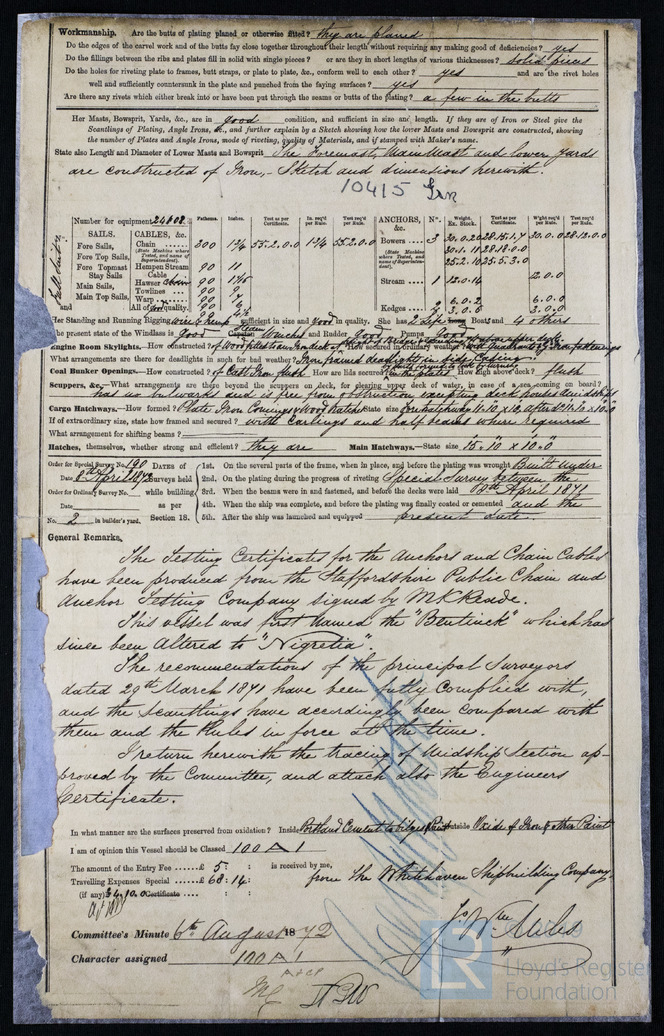 Workmanship. Are the butts of plating planed or otherwise fitted? they are planed
Do the edges of the carvel work and of the butts fay close together throughout their length without requiring any making good of deficiencies? yes
Do the fillings between the ribs and plates fill in solid with single pieces? or are they in short lengths of various thicknesses? solid pieces
Do the holes for riveting plate to frames, butt straps, or plate to plate, &c., conform well to each other? yes and are the rivet holes
well and sufficiently countersunk in the plate and punched from the faying surfaces? yes
Are there any rivets which either break into or have been put through the seams or butts of the plating? a few in the butts
Her Masts, Bowsprit, Yards, &c., are in good condition, and sufficient in size and length. If they are of Iron or Steel give the
Scantlings of Plating, Angle Irons, &c., and further explain by a Sketch showing how the lower Masts and Bowsprit are constructed, showing
the number of Plates and Angle Irons, mode of riveting, quality of Materials, and if stamped with Maker's name.
State also Length and Diameter of Lower Masts and Bowsprit The Foremast, Main Mast and lower yards
are constructed of Iron, - Sketch and dimensions herewith.
10415 Irn
Number for equipment 24808 Fathoms. Inches. Test as per Certificate. In. req'd per Rule. Test req'd per Rule. ANCHORS, &c. No. Weight. Ex. Stock. Test as per Certificate. W'ght req'd per Rule. Test req'd per Rule.
SAILS. CABLES, &c.
Fore Sails, Chain 300 55.2.0.0 55.2.0.0 Bowers 3 30.0.20 28.15.1.7 30.0.0 28.12.0.0
Fore Top Sails, (State Machine where Tested, and name of Superintendent). 30.1.14 28.18.0.0
Fore Topmast Stay Sails Hempen Stream Cable 90 11 25.2.10 25.5.3.0
Main Sails, Hawser chain 90 Stream 1 12.0.14 12.0.0
Main Top Sails, Towlines 90
Warp 90 6.0.2 6.0.0
and All of good quality. Kedges 2 3.0.6 3.0.0
Her Standing and Running Rigging wire & hemp sufficient in size and good in quality. She has 2 Life Boats and 4 others
The present state of the Windlass is good Capstan and Rudder good Pumps Good
Engine Room Skylights.—How constructed?
What arrangements are there for deadlights in such for bad weather? Iron framed deadlight in side casing
Coal Bunker Openings.—How constructed? of Cast Iron flush How are lids secured? How high above deck? flush
Scuppers, &c.—What arrangements are there beyond the scuppers on deck, for clearing upper deck of water, in case of a sea coming on board?
has no bulwarks and is free from obstruction excepting deck houses amidships
Cargo Hatchways.—How formed? Plate Iron Comings & Wood Hatches State size
If of extraordinary size, state how framed and secured? with Carlings and half beams where required
What arrangement for shifting beams?
Hatches, themselves, whether strong and efficient? they are Main Hatchways.—State size 15.10 x 10.0
Order for Special Survey No. 190 DATES of Surveys held while building as per Section 18.
Date 8th April 1872
Order for Ordinary Survey No.
Date
No. 2 in builder's yard.
1st. On the several parts of the frame, when in place, and before the plating was wrought Built under
2nd. On the plating during the progress of riveting Special Survey between the
3rd. When the beams were in and fastened, and before the decks were laid April 1871
4th. When the ship was complete, and before the plating was finally coated or cemented and the
5th. After the ship was launched and equipped present date
General Remarks,
The Testing Certificates for the Anchors and Chain Cables
have been produced from the Staffordshire Public Chain and
Anchor Testing Company signed by M K Reade.
This vessel was first named the "Bentinck" which has
since been Altered to "Nigretia".
The recommendations of the principal Surveyors
dated 29th March 1871 have been fully complied with,
and the Scantlings have accordingly been compared with
them and the Rules in force at the time.
I return herewith the tracing of Midship Section ap-
proved by the Committee, and attach also the Engineers
Certificate.
In what manner are the surfaces preserved from oxidation? Inside Portland Cement to bilges & Paint Outside Oxide of Iron & other Paint
I am of opinion this Vessel should be Classed 100 A 1
The amount of the Entry Fee ......£ 5 : : is received by me,
Travelling Expenses Special ......£ 68 : 14 : from The Whitehaven Shipbuilding Company
(if any) Certificate
Jn Wm Miles
Committee's Minute 6th August 1872
Character assigned 100 A 1
LR
Lloyd's Register
Foundation